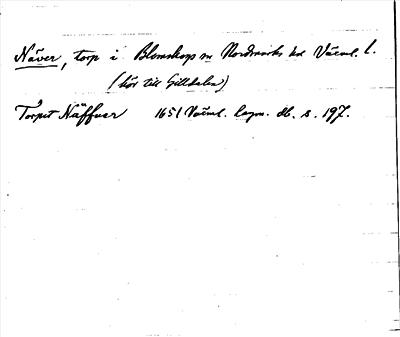 Näver, torp i Blomskogs sn Nordmarks hd Värml. l.
(hör till Gilldalen)
Torpet Näffuer 1651 Värml. lagm. db. s. 197.